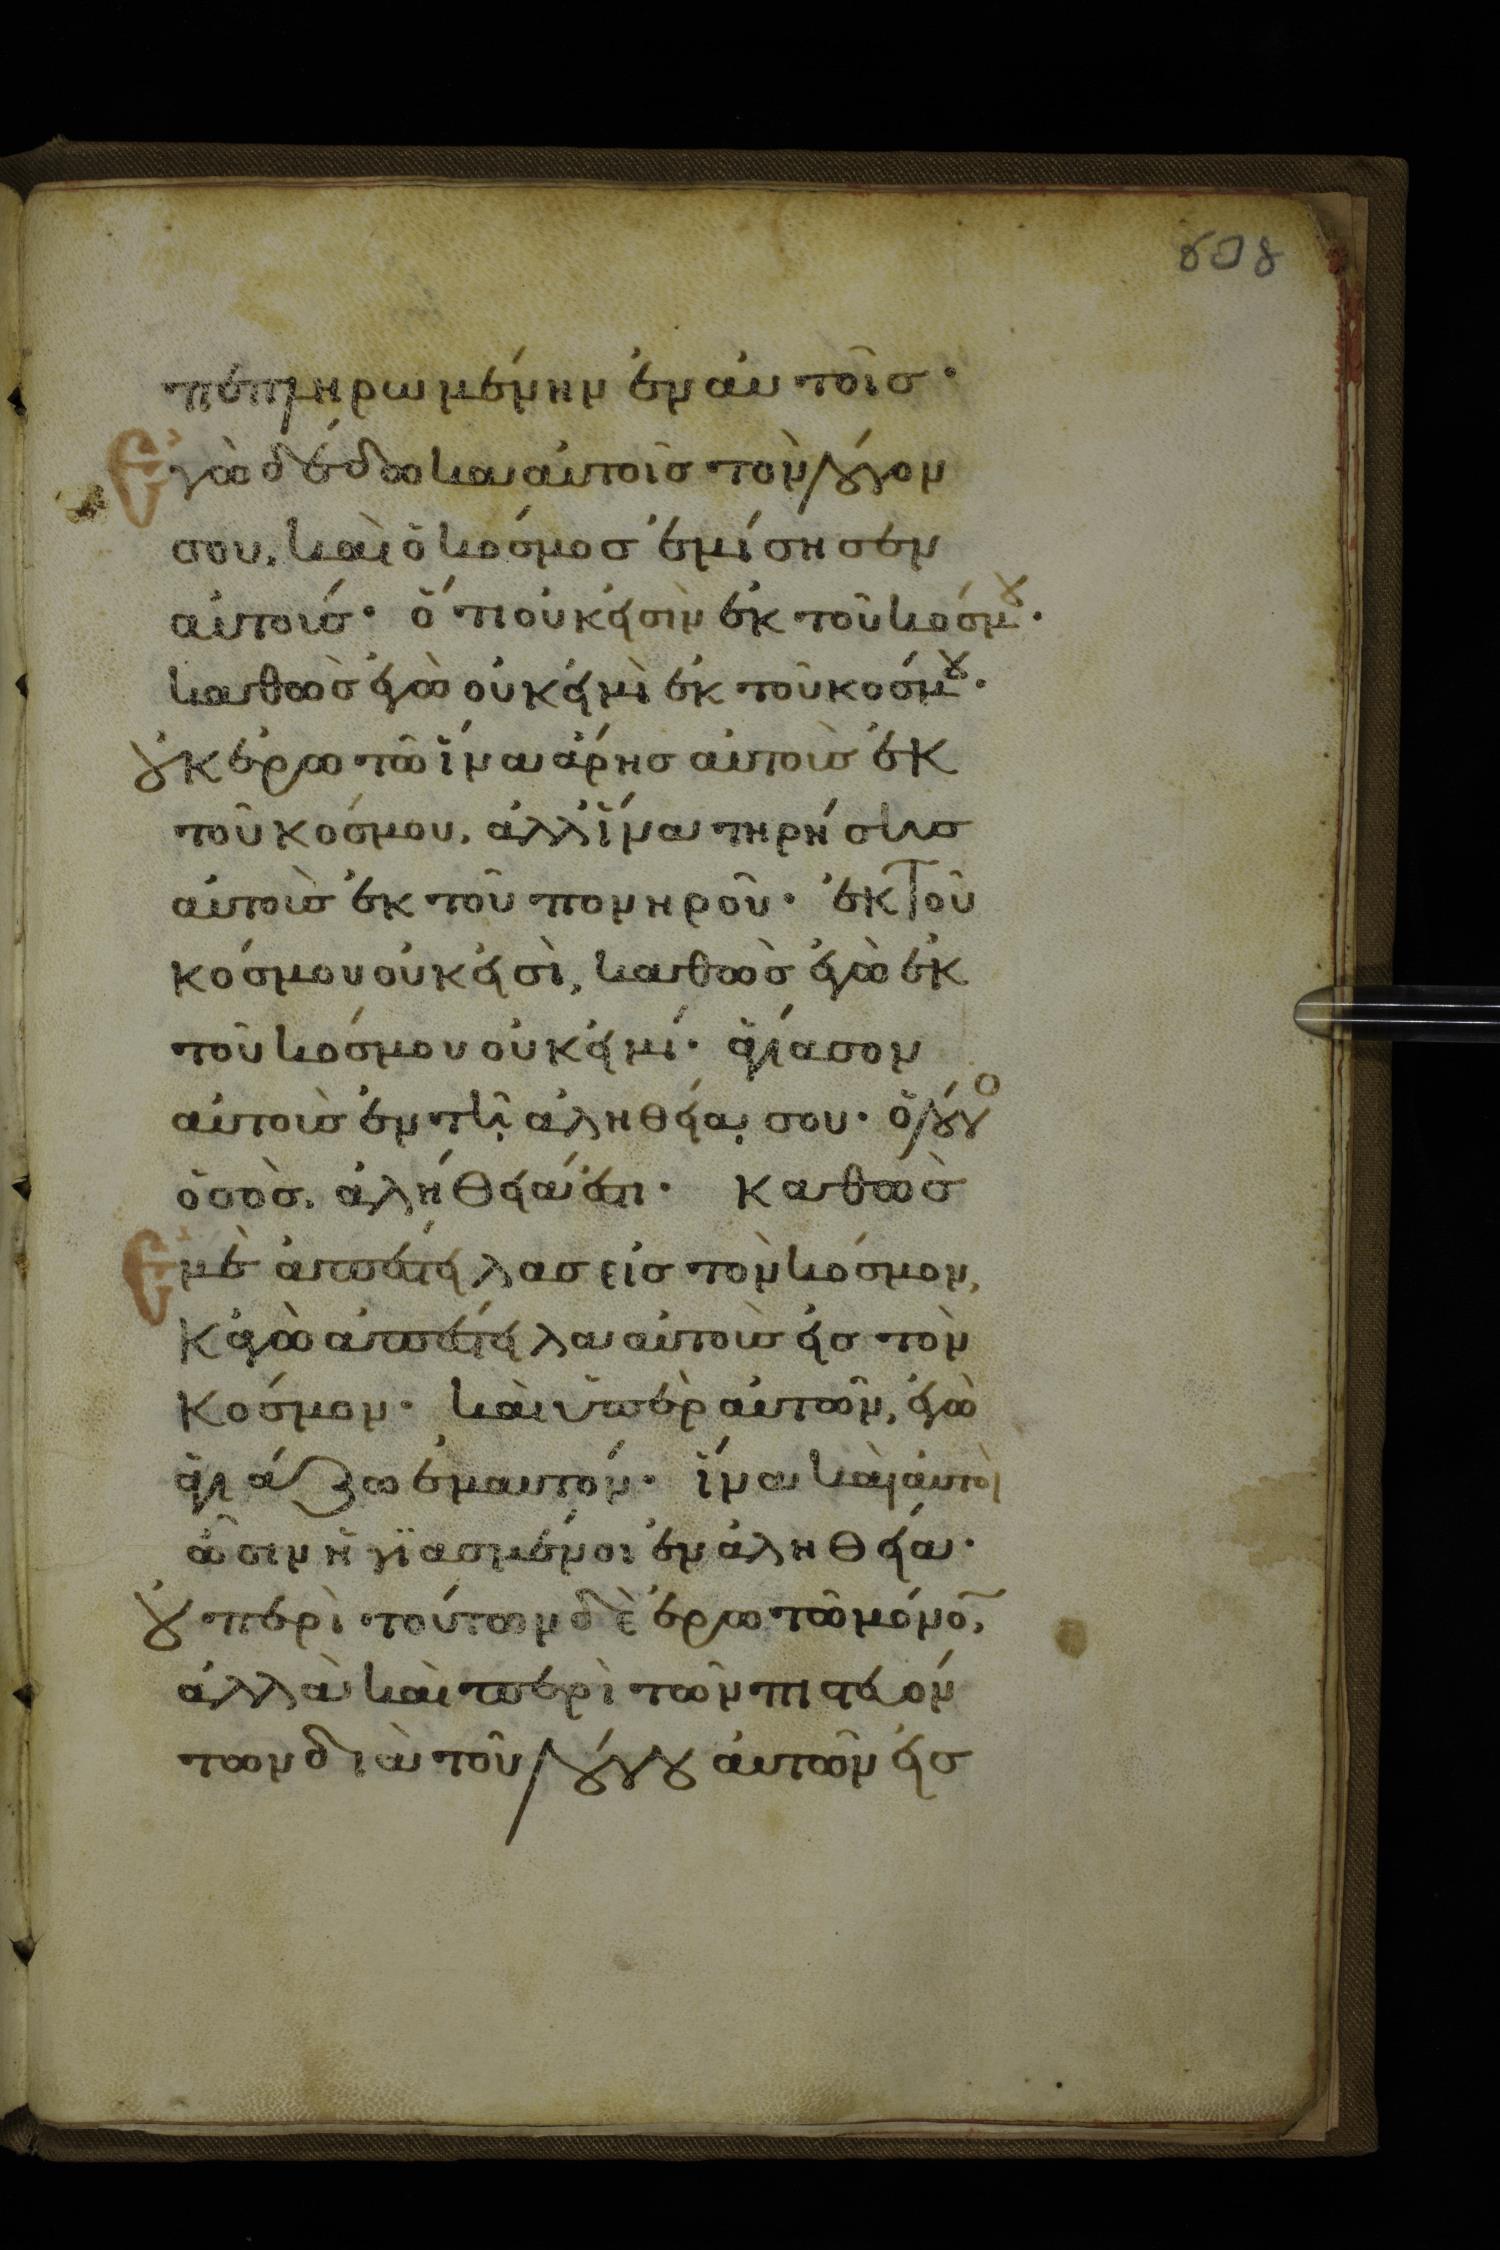 πεπληρωμένην ἐν αὐτοῖσ·
Ἐγὼ δέδωκα αὐτοῖσ τὸν λόγον
σου, καὶ ὁ κόσμοσ ἐμίσησεν
αὐτούσ· ὅτι οὐκ εἰσὶν ἐκ τοῦ κόσμου·
καθὼσ ἐγὼ οὐκ εἰμὶ ἐκ τοῦ κόσμου·
οὐκ ἐρωτῶ ἵνα ἄρησ αὐτοὺσ ἐκ
τοῦ κόσμου, ἀλλ' ἵνα τηρήσησ
αὐτοὺσ ἐκ τοῦ πονηροῦ· ἐκ τοῦ
κόσμου οὐκ εἰσὶ, καθὼσ ἐγὼ ἐκ
τοῦ κόσμου οὐκ εἰμί· ἁγίασον
αὐτοὺσ ἐν τῇ ἀληθείᾳ σου· ὁ λόγο
ὁ σὸσ, ἀλήθειά ἐστι· Καθὼσ
Ἐμὲ ἀπέστειλασ εἰσ τὸν κόσμον,
Κἀγὼ ἀπέστειλα αὐτοὺσ εἰσ τὸν
κόσμον· καὶ ὑπὲρ αὐτῶν, ἐγὼ
ἁγιάζω ἐμαυτόν· ἵνα καὶ αὐτοὶ
ὦσιν ἡγϊασμένοι ἐν ἀληθεία·
οὐ περὶ τούτων δὲ ἐρωτῶ μόνο̄,
ἀλλὰ καὶ περὶ τῶν πιστευόν
των διὰ τοῦ λόγου αὐτῶν εἰσ